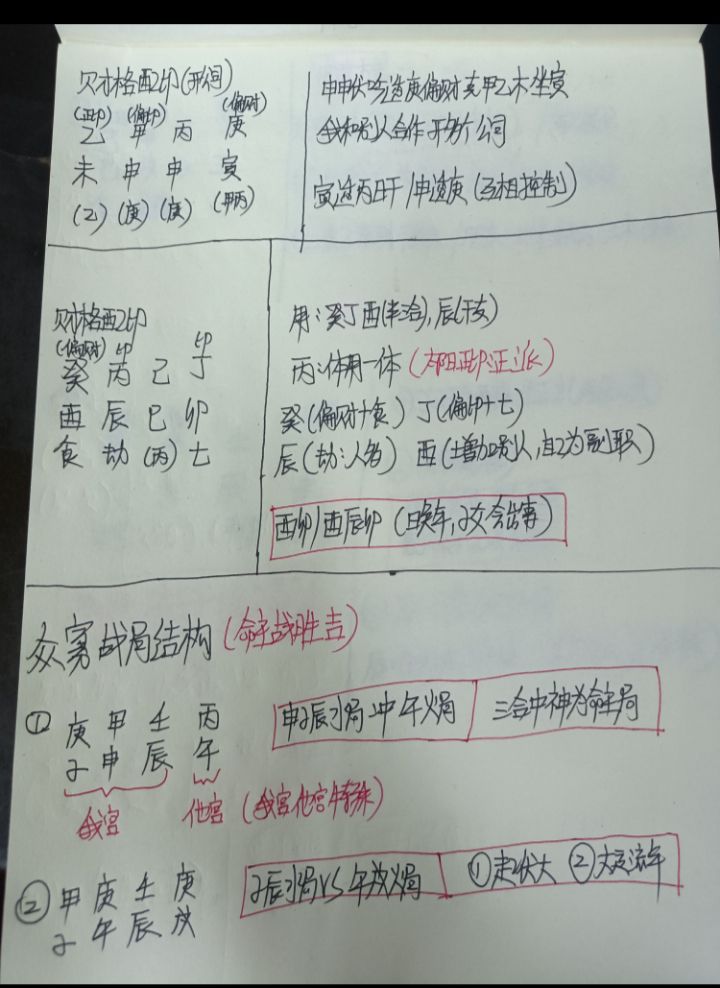 财格配印(形间)
(正印) (偏印) (偏财)
乙 甲 丙 庚
未 申 申 寅
(乙) (庚) (庚) (甲丙)
申申伏吟透庚偏财克甲乙木坐寅
我和别人合作开公司
寅透丙日干/申透庚(互相控制)
财格配印
(偏财) 印 印
癸 丙 己 丁
酉 辰 巳 卯
食 劫 (丙) 七
用:癸丁酉(半冶),辰(干支)
丙:体用一体(邪正派)
癸(偏财+食) 丁(偏印+七)
辰(劫:人名) 酉(增加别人,自己为副职)
酉卯/酉辰卯(晚年,子女会出事)
众寡战局结构(命主战胜吉)
① 庚 甲 壬 丙
子 申 辰 午
我宫 他宫(我宫他宫特殊)
申子辰水局冲午火局 三会中神为命主局
② 甲 庚 壬 庚
子 午 辰 戌
子辰水局VS午戌火局 ①走状大 ②大运流年